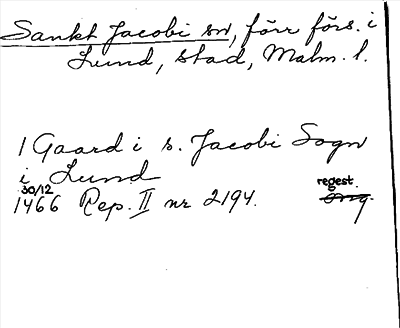 Sankt Jacobi sn, förr förs. i
Lund, stad, Malm. l.
1 Gaard i s. Jacobi Sogn
i Lund
30/12
1466 Rep. II nr 2194.
regest.
orig.